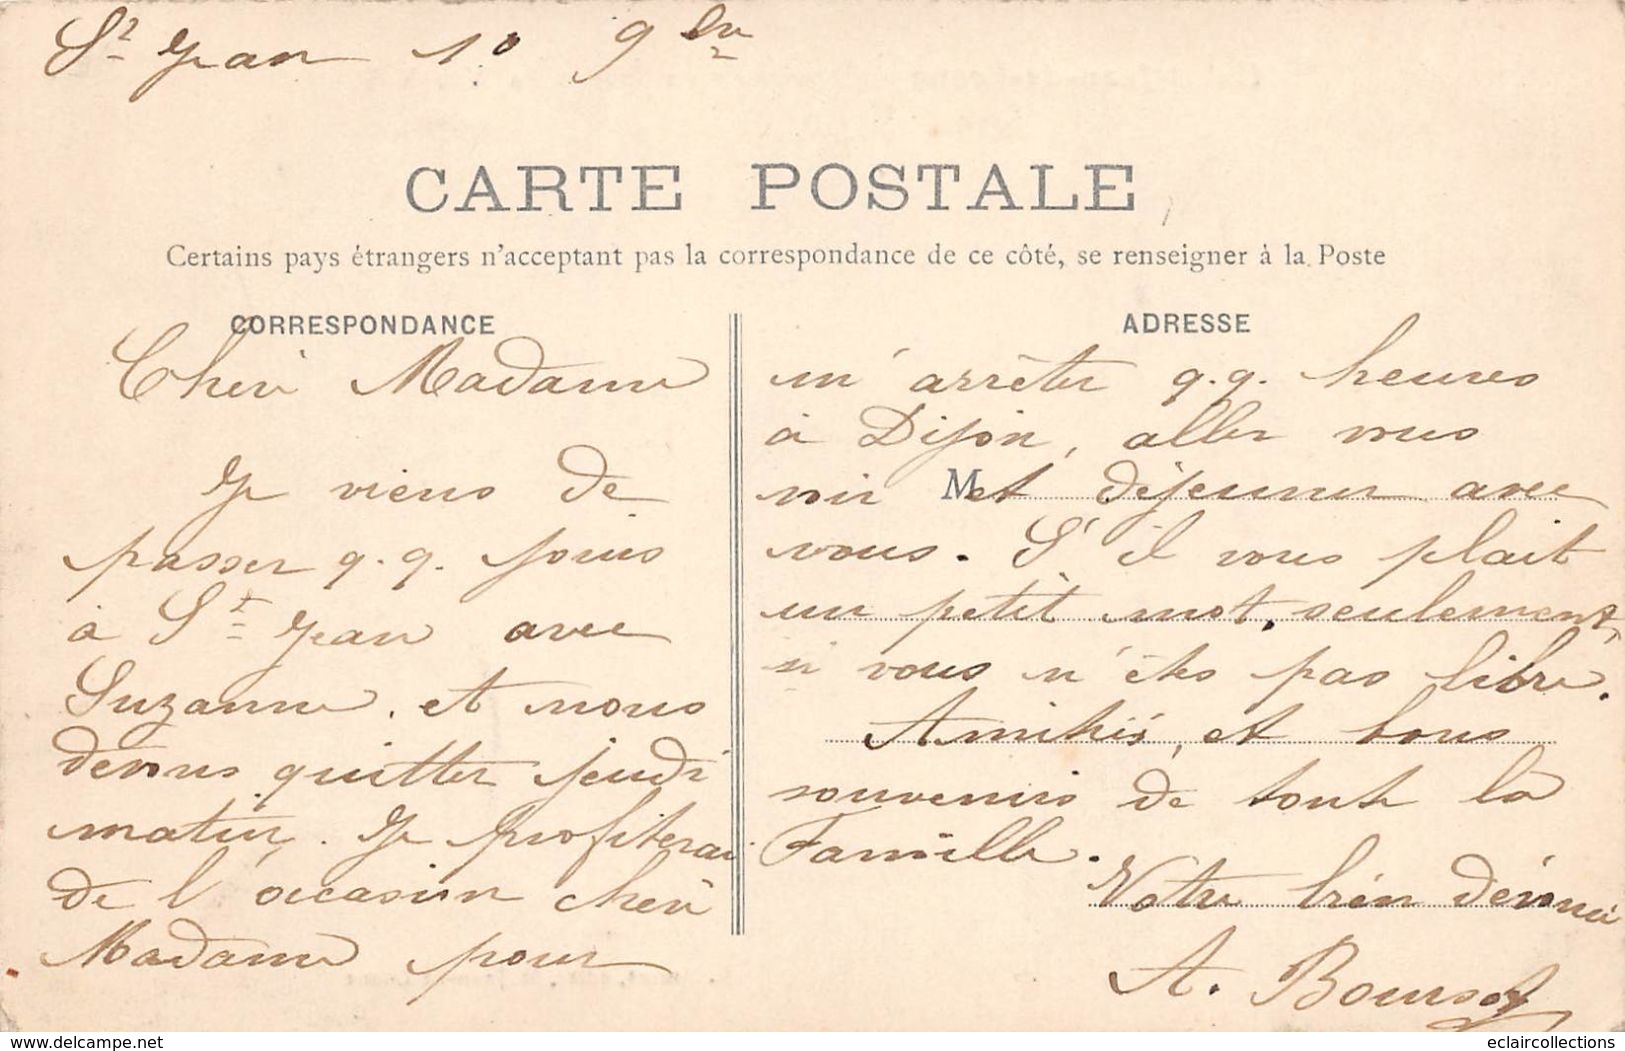 St Jean 10 9bre
CARTE POSTALE
Certains pays étrangers n'acceptant pas la correspondance de ce côté, se renseigner à la Poste
CORRESPONDANCE
Chère Madame
Je viens de
passer q.q. jours
à St Jean avec
Suzanne, et nous
devons quitter jeudi
matin. Je profiterai
de l'occasion chère
Madame pour
ADRESSE
m'arrêter q.q. heures
à Dijon, aller vous
voir M et déjeuner avec
vous. S'il vous plait
un petit mot, seulement,
si vous n'êtes pas libre.
Amitiés, et bons
souvenirs de toute la
Famille.
Votre bien dévouée
A. Boursot
www.delcampe.net
eclaircollections